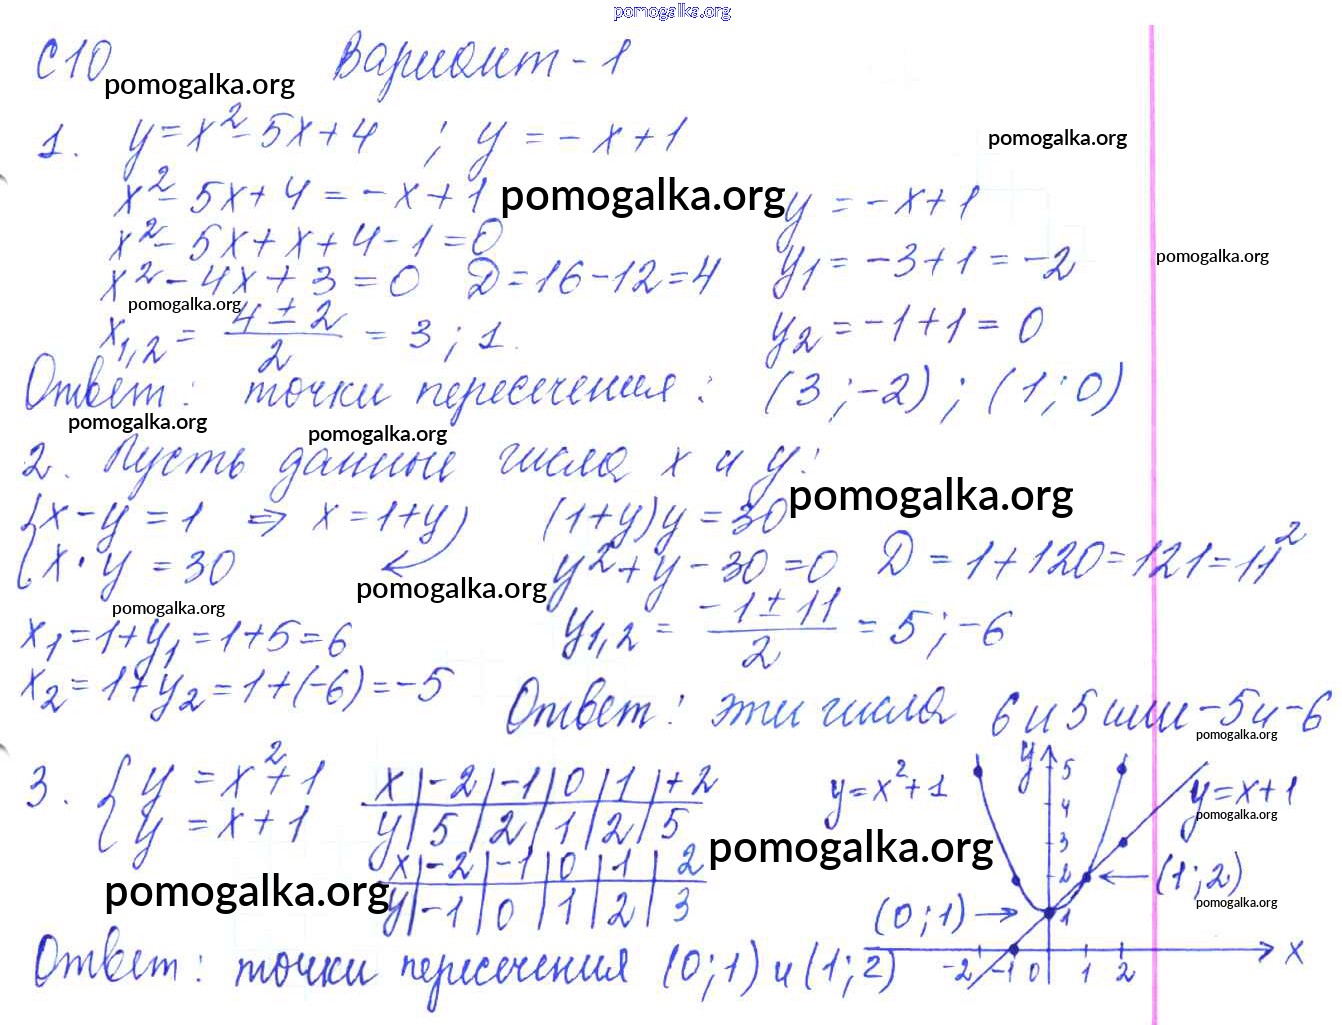 pomogalka.org
С10 Вариант-1
pomogalka.org
1. y=x²-5x+4 ; y=-x+1
pomogalka.org
x²-5x+4=-x+1 pomogalka.org y=-x+1
x²-5x+x+4-1=0
x²-4x+3=0 D=16-12=4 y₁=-3+1=-2 pomogalka.org
pomogalka.org
x₁,₂=(4±2)/2=3;1. y₂=-1+1=0
Ответ: точки пересечения: (3;-2); (1;0)
pomogalka.org pomogalka.org
2. Пусть данные числа x и y:
pomogalka.org
{x-y=1 ⇒ x=1+y (1+y)y=30
{x·y=30 y²+y-30=0 D=1+120=121=11²
pomogalka.org pomogalka.org
x₁=1+y₁=1+5=6 y₁,₂=(-1±11)/2=5;-6
x₂=1+y₂=1+(-6)=-5
Ответ: эти числа 6 и 5 или -5 и -6
pomogalka.org
3. {y=x²+1 x|-2|-1|0|1|+2 y=x²+1 y 5 y=x+1
{y=x+1 y|5|2|1|2|5 4 pomogalka.org
pomogalka.org 3
x|-2|-1|0|1|2 2 (1;2)
pomogalka.org y|-1|0|1|2|3 (0;1) 1 pomogalka.org
Ответ: точки пересечения (0;1) и (1;2) -2 -1 0 1 2 x